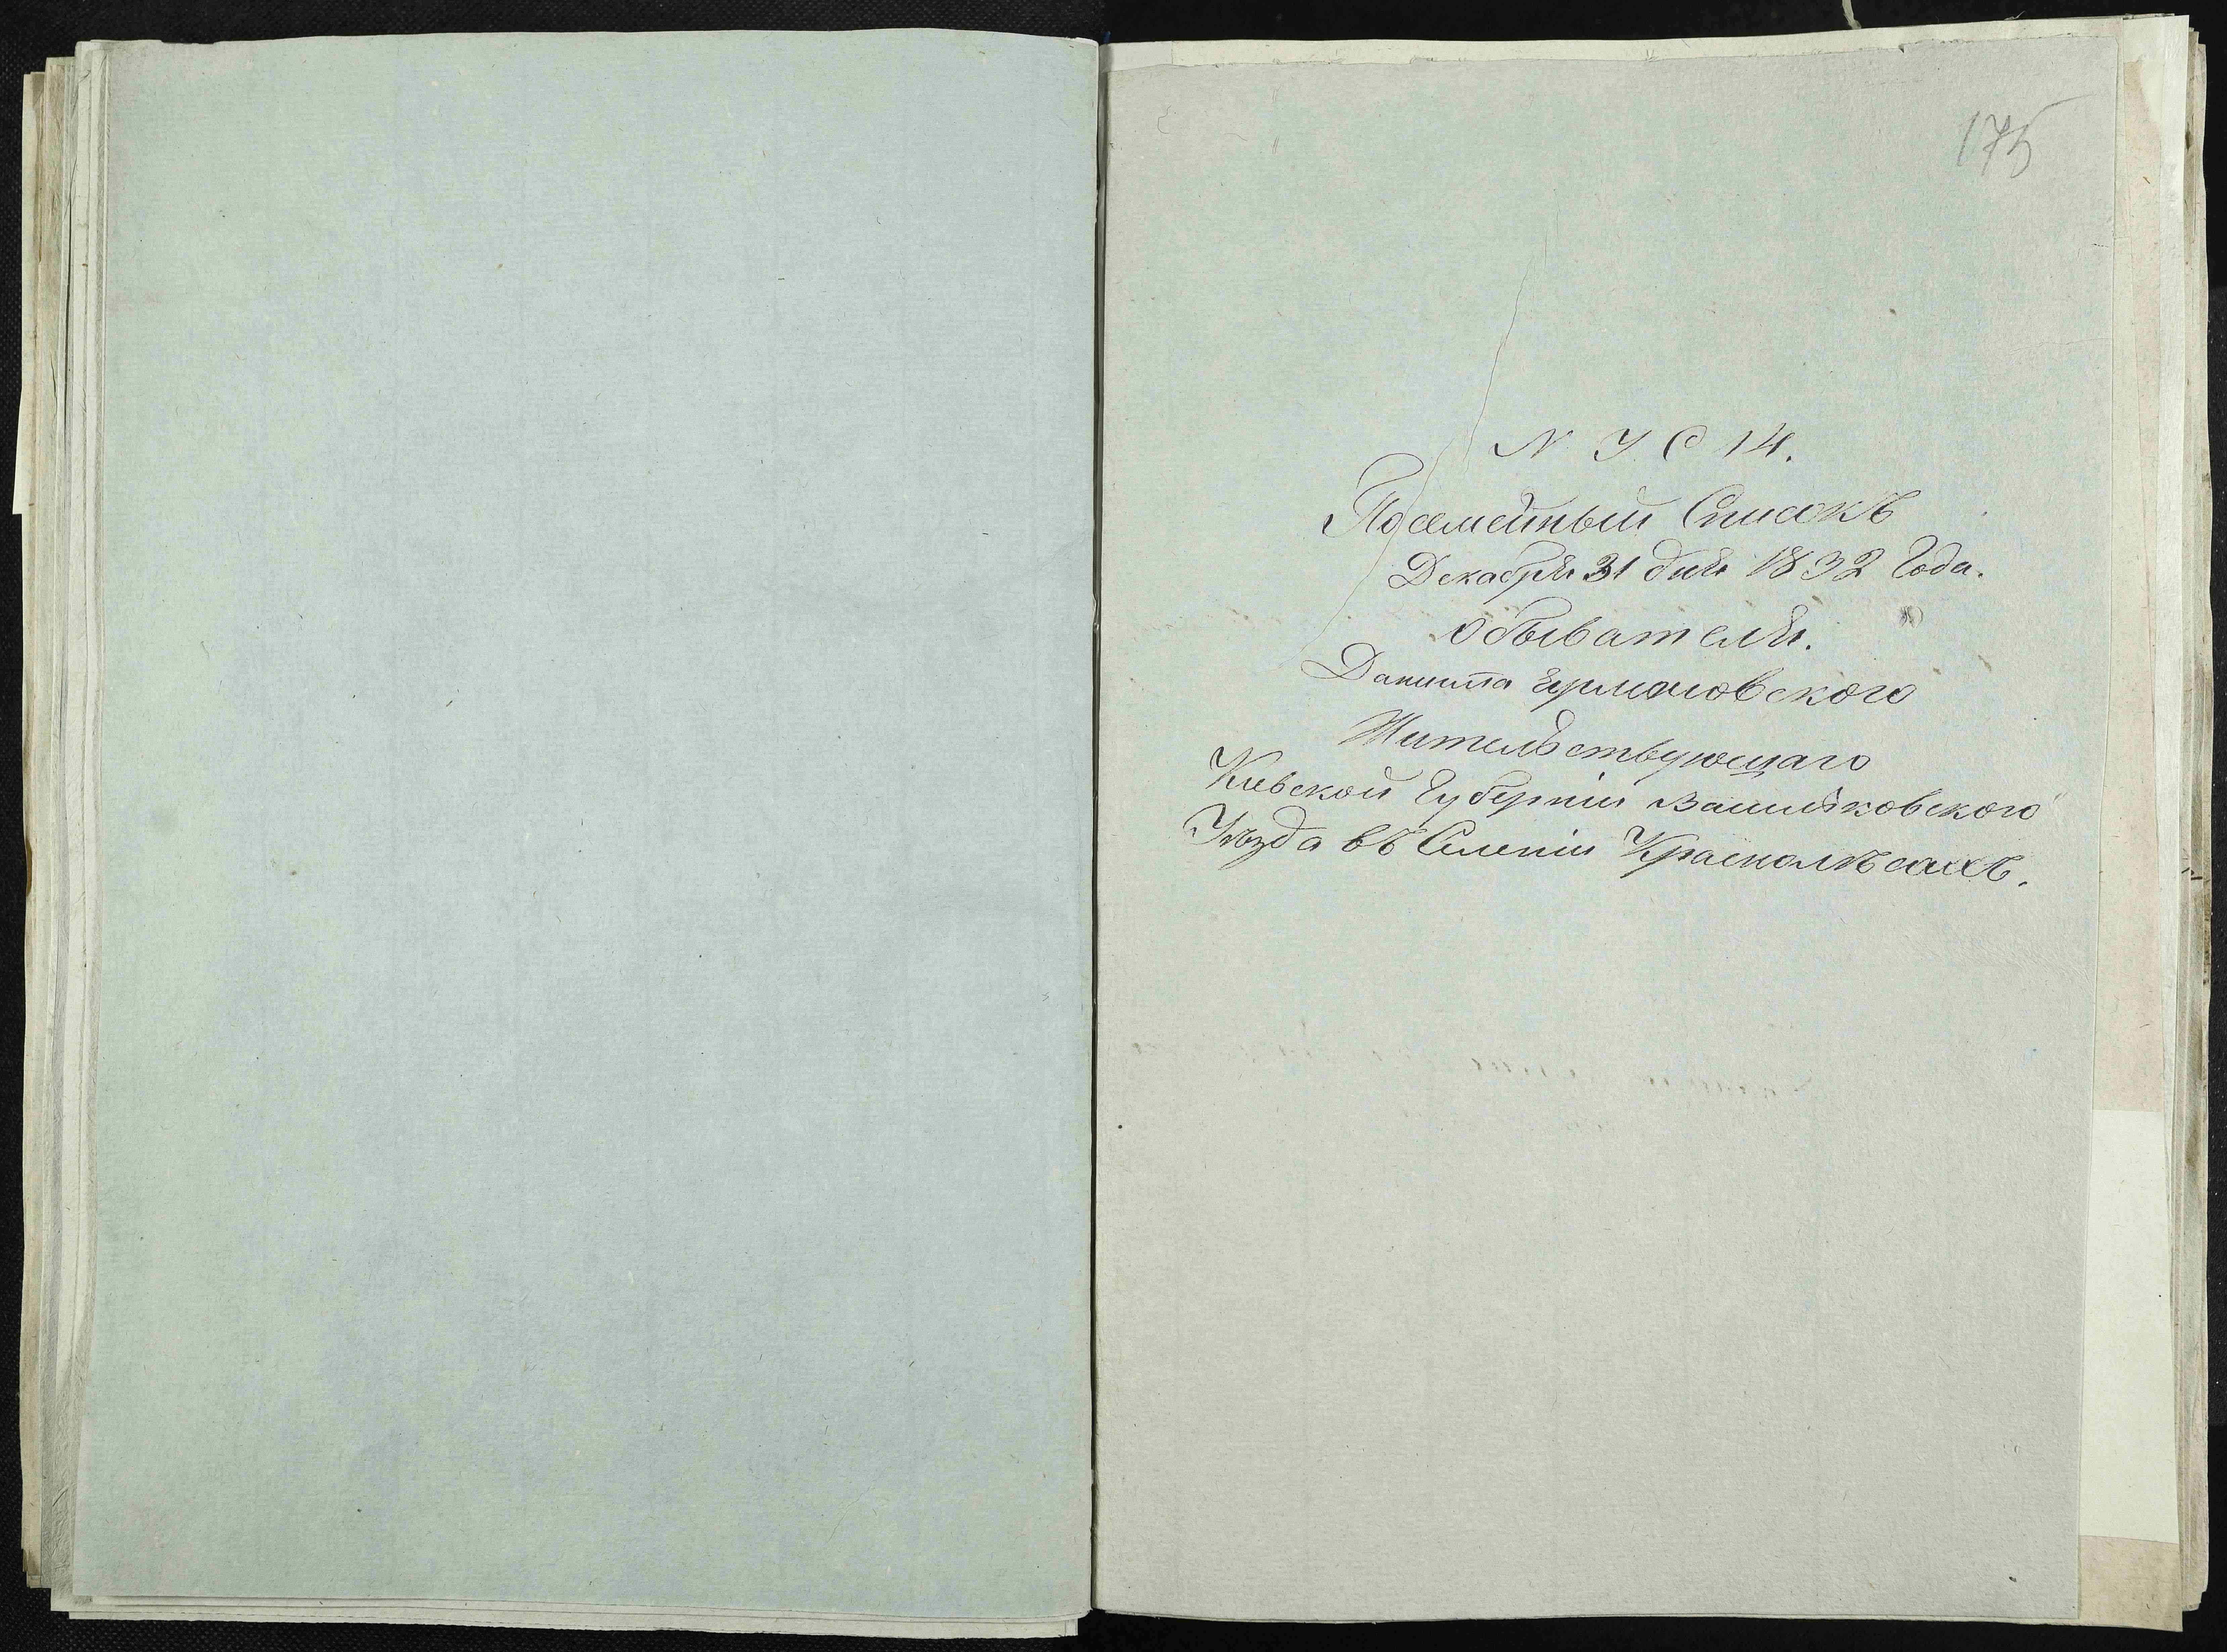 175
N У С 14.
Посемейный Списокъ
Декабря 31 дня 1832 Года.
Обывателя.
Данила Ярмоловского
Жительствующаго
Киевской Губерніи Василковского
Уѣзда въ Селеніи Красналѣсахъ.